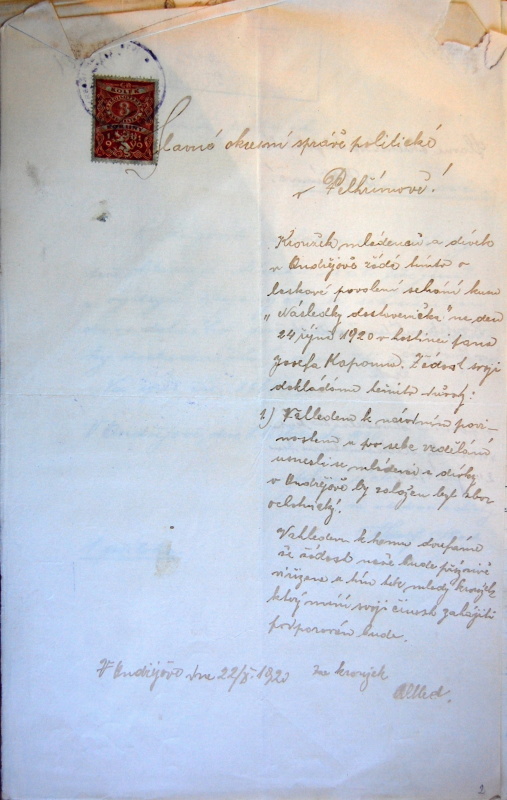 KOLEK
3
Slavné okresní správě politické
v Pelhřimově!
Kroužek mládenců a dívek
v Ondřejově žádá tímto o
laskavé povolení sehrání kusu
„Následky dostaveníčka" na den
24 října 1920 v hostinci pana
Josefa Kapouna. Žádost svoji
dokládáme těmito
1.) Vzhledem k národním povin-
nostem a po sebe vzdělání
usnesli se mládenci a dívky
v Ondřejově by založen byl sbor
ochotnický.
Vzhledem k tomu doufáme
že žádost naše bude příznivě
vyřízena a tím tak mladý kroužek
který míní svoji činost zahájiti
podporován bude.
V Ondřejově dne 22/X. 1920
Za kroužek
2